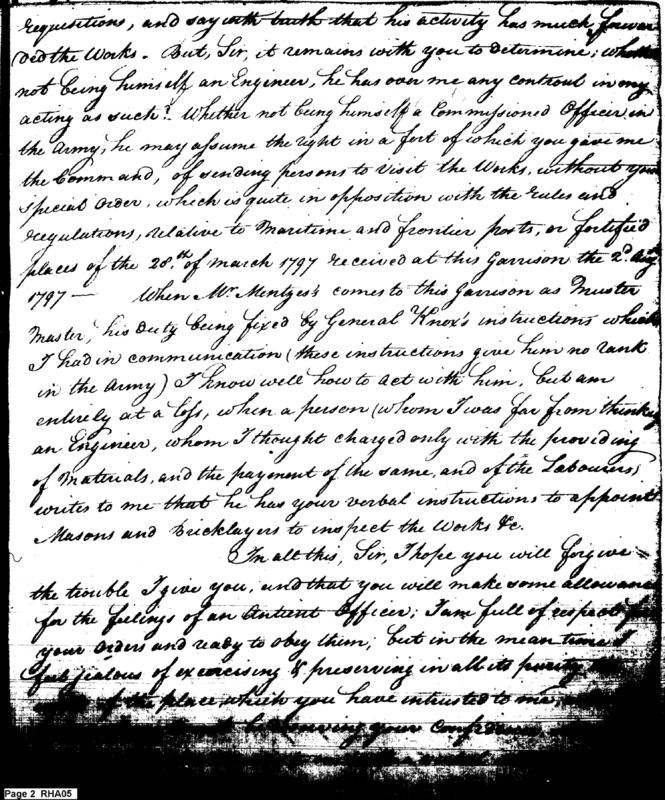 requisitions, and say with truth that his activity has much forwar
ded the Works. But, Sir, it remains with you to determine; whether
not being himself an Engineer, he has over me any controul in my
acting as such? Whether not being himself a Commissioned Officer in
the Army, he may assume the right in a fort of which you gave me
the Command, of sending persons to visit the Works, without your
special order, which is quite in opposition with the rules and
regulations, relative to Maritime and frontier posts, or fortified
places of the 28.th of March 1797 received at this Garrison the 2.d Augt
1797 — When Mr. Mentges's comes to this Garrison as Muster
Master, his duty being fixed by General Knox's instructions which
I had in communication (these instructions give him no rank
in the Army) I know well how to act with him, but am
entirely at a loss, when a person (whom I was far from thinking
an Engineer, whom I thought charged only with the providing
of Materials, and the payment of the same, and of the Labourers)
writes to me that he has your verbal instructions to appoint
Masons and Bricklayers to inspect the Works &c.
In all this, Sir, I hope you will forgive
the trouble I give you, and that you will make some allowance
for the feelings of an Antient Officer; I am full of respect for
your orders and ready to obey them; but in the mean time I
feel jealous of exercising & preserving in all its purity the
of the place which you have intrusted to me,
your Confidence
Page 2 RHA05